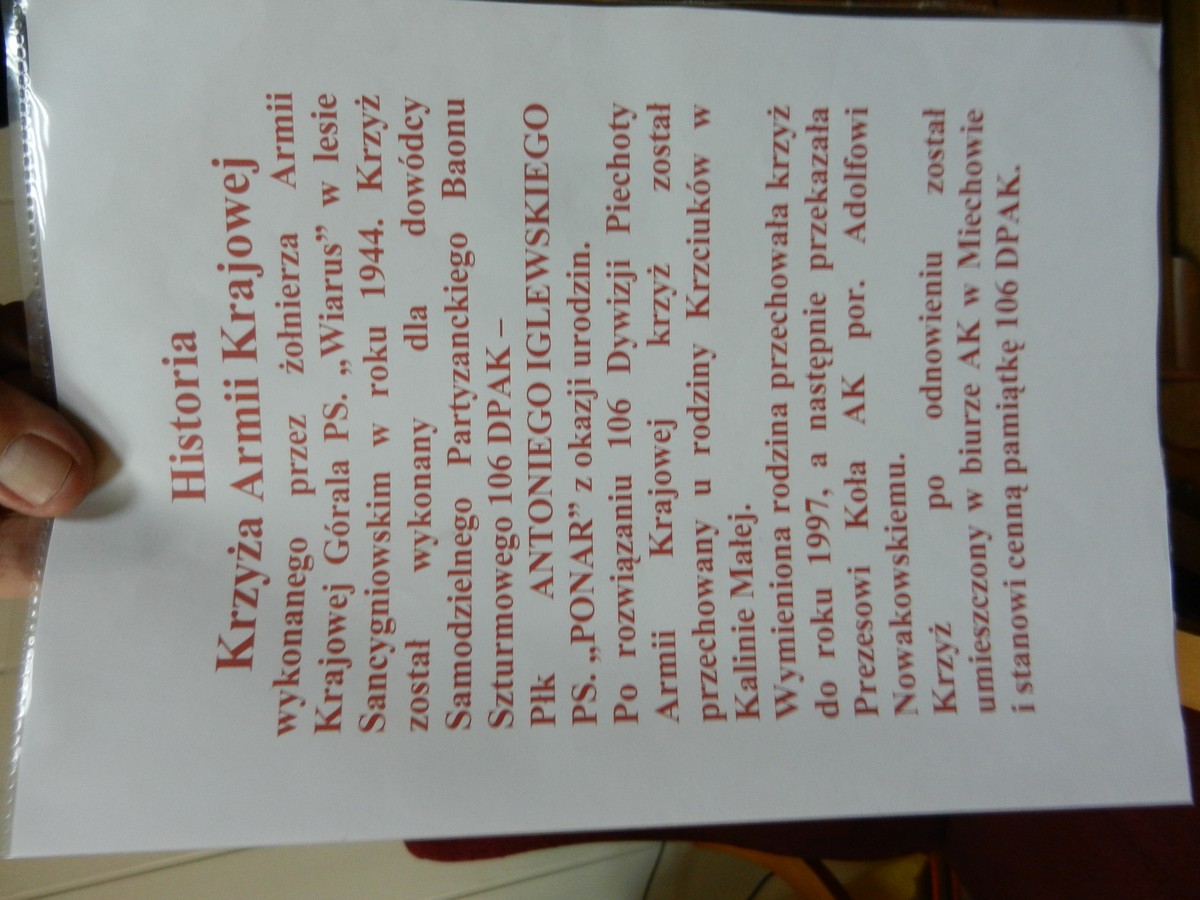 Historia
Krzyża Armii Krajowej
wykonanego przez żołnierza Armii
Krajowej Górala PS. „Wiarus” w lesie
Sancygniowskim w roku 1944. Krzyż
został wykonany dla dowódcy
Samodzielnego Partyzanckiego Baonu
Szturmowego 106 DPAK –
Płk ANTONIEGO IGLEWSKIEGO
PS. „PONAR” z okazji urodzin.
Po rozwiązaniu 106 Dywizji Piechoty
Armii Krajowej krzyż został
przechowany u rodziny Krzciuków w
Kalinie Małej.
Wymieniona rodzina przechowała krzyż
do roku 1997, a następnie przekazała
Prezesowi Koła AK por. Adolfowi
Nowakowskiemu.
Krzyż po odnowieniu został
umieszczony w biurze AK w Miechowie
i stanowi cenną pamiątkę 106 DPAK.